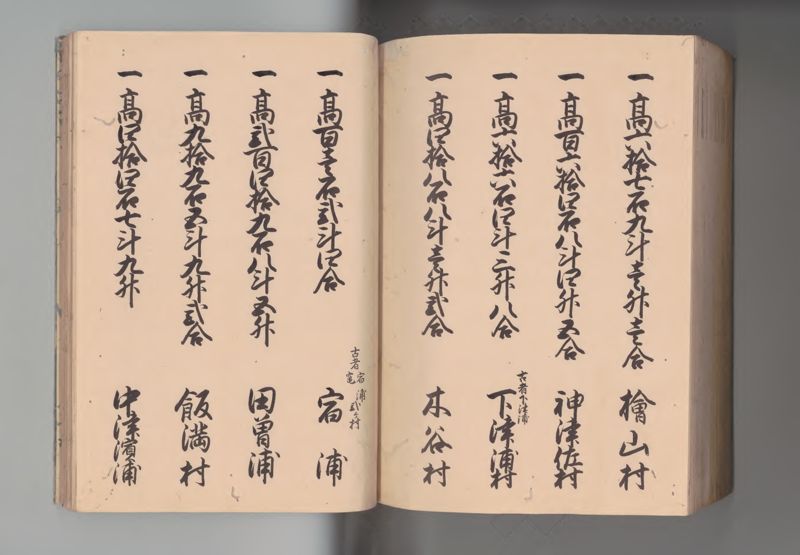 一高六拾七石九斗壱升壱合 檜山村
一高百六拾四石八斗四升五合 神津佐村
一高六拾六石四斗三升八合 下津浦村
古者下津浦
一高四拾八石八斗壱升弐合 木谷村
一高百壱石弐斗四合 宿浦
古者宿浦竃弐ヶ村
一高弐百四拾九石八斗五升 田曽浦
一高九拾九石五斗九升弐合 飯満村
一高四拾四石七斗九升 中津濱浦